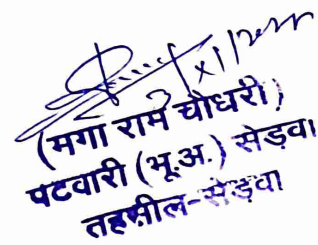 (मगा राम चौधरी)
पटवारी (भू.अ.) सेड़वा
तहसील-सेड़वा